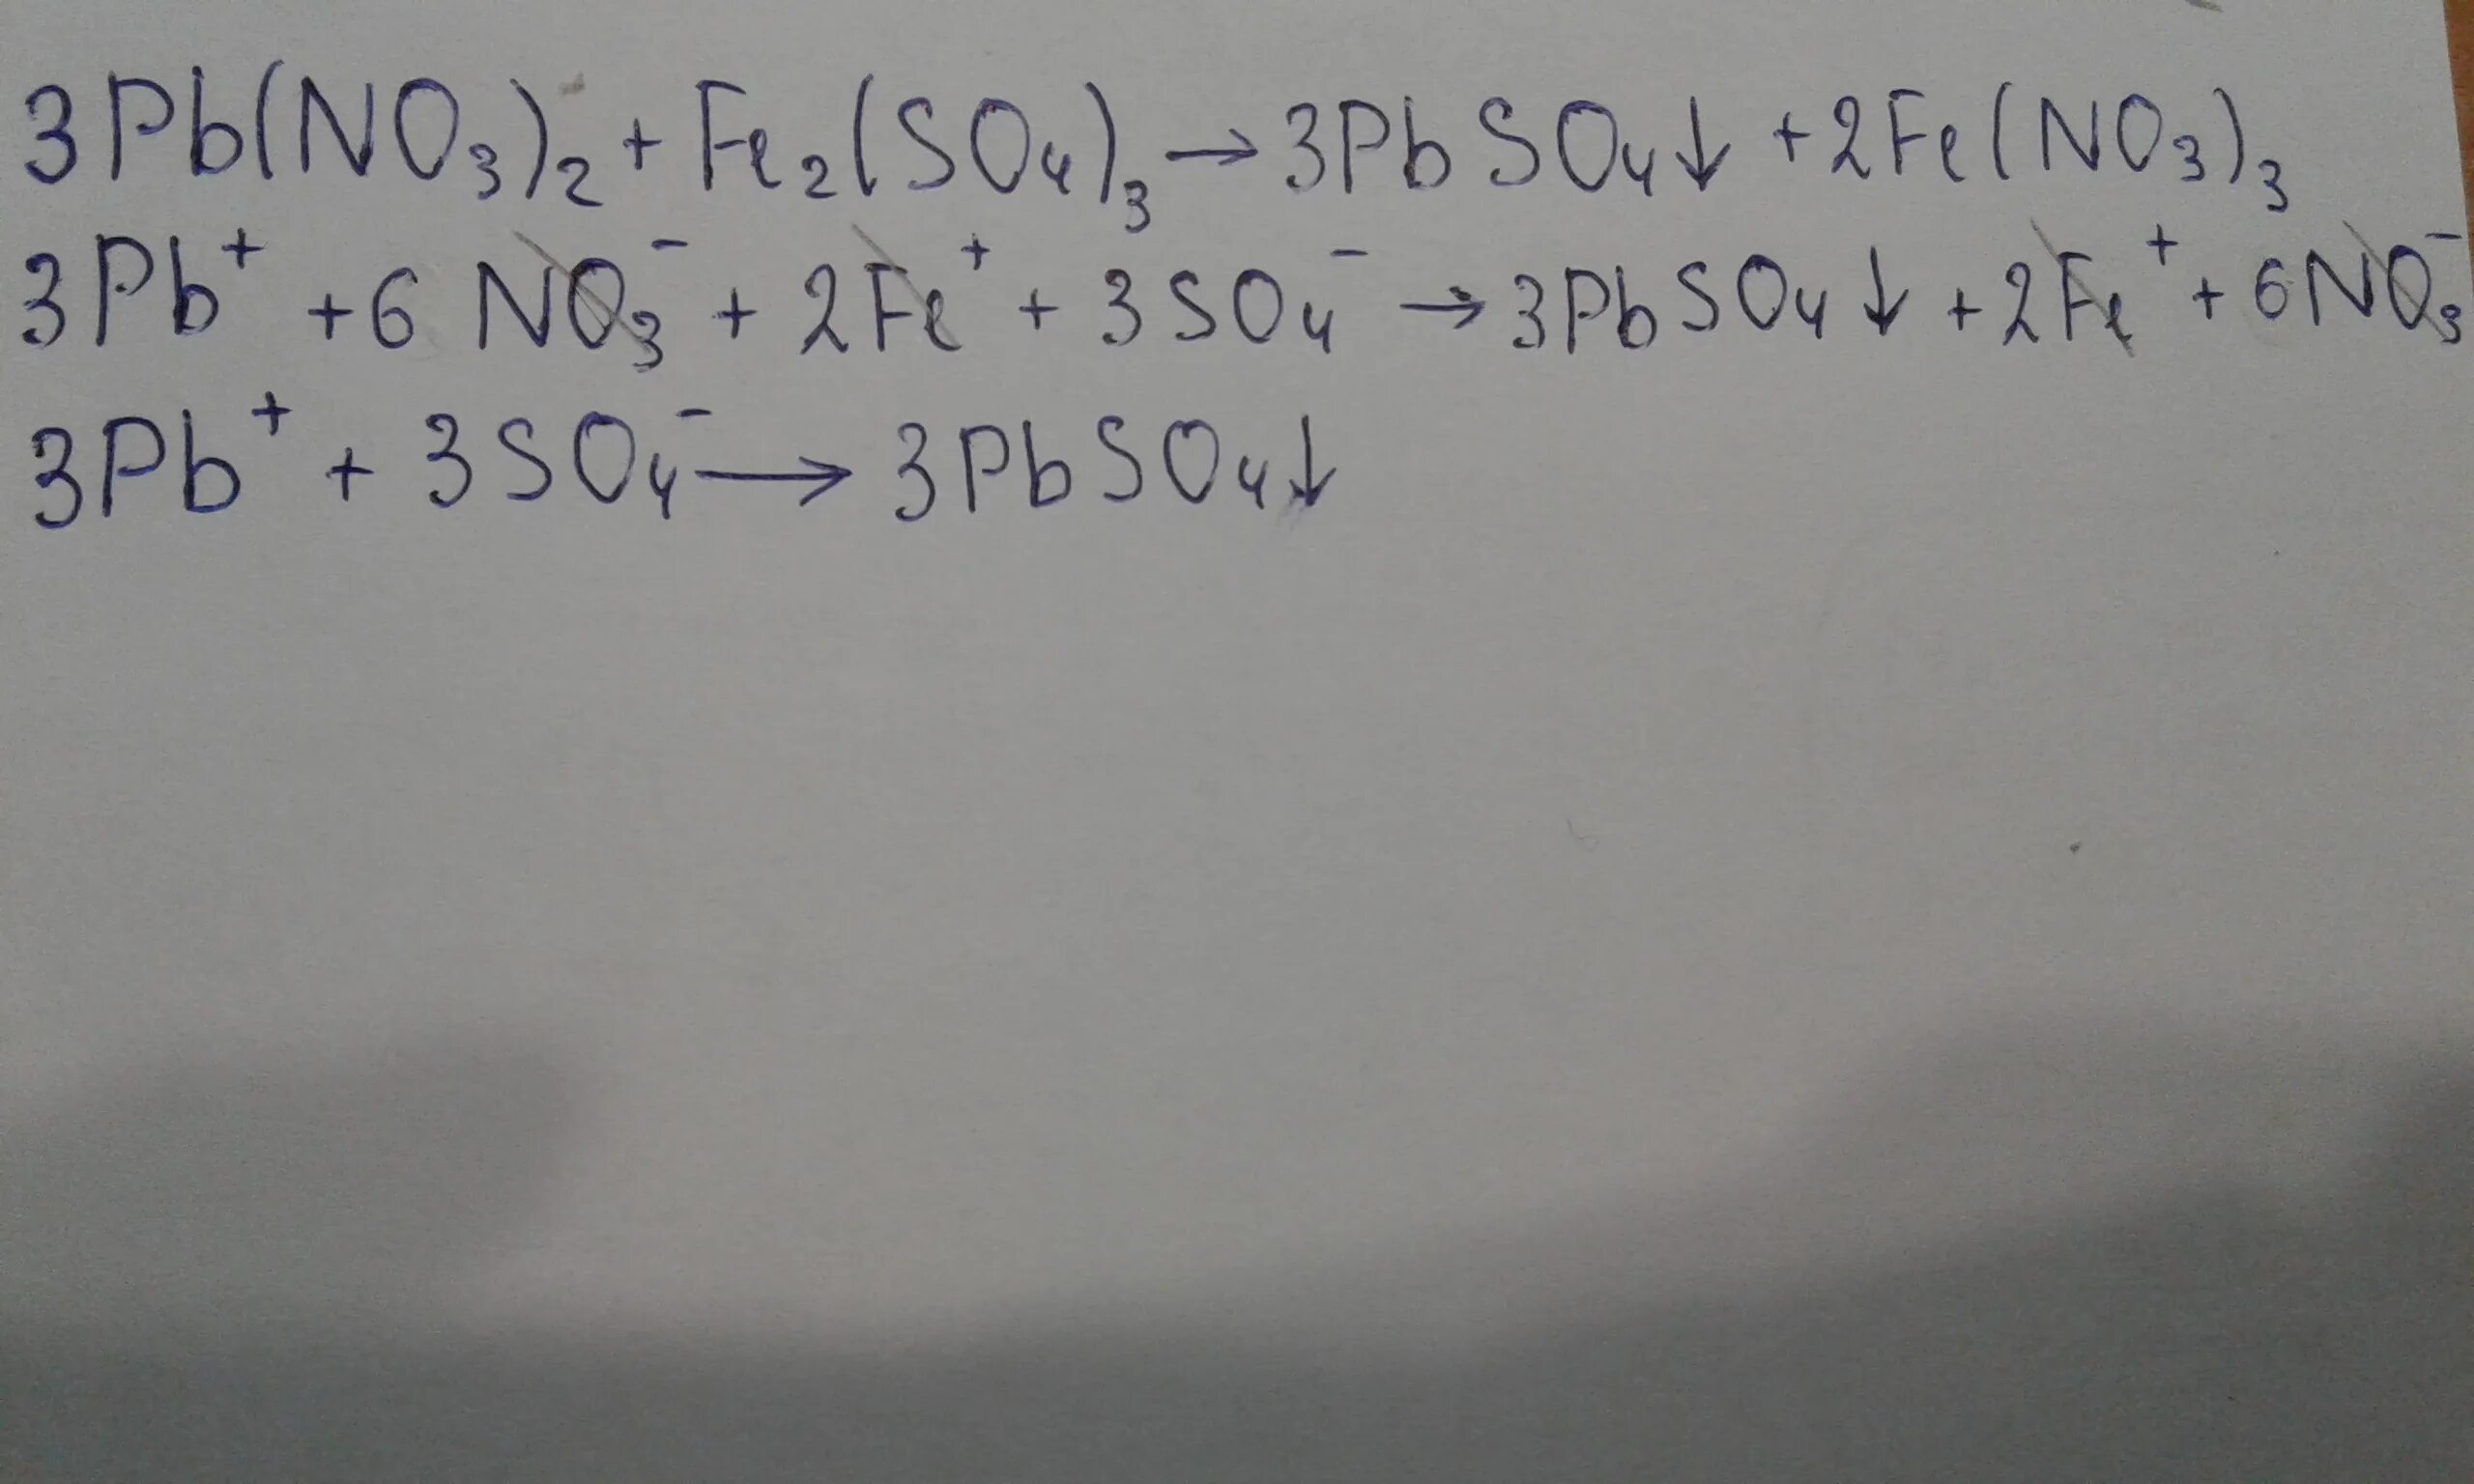 3Pb(NO₃)₂ + Fe₂(SO₄)₃ → 3PbSO₄↓ + 2Fe(NO₃)₃
3Pb⁺ + 6NO₃⁻ + 2Fe⁺ + 3SO₄⁻ → 3PbSO₄↓ + 2Fe⁺ + 6NO₃⁻
3Pb⁺ + 3SO₄⁻ → 3PbSO₄↓